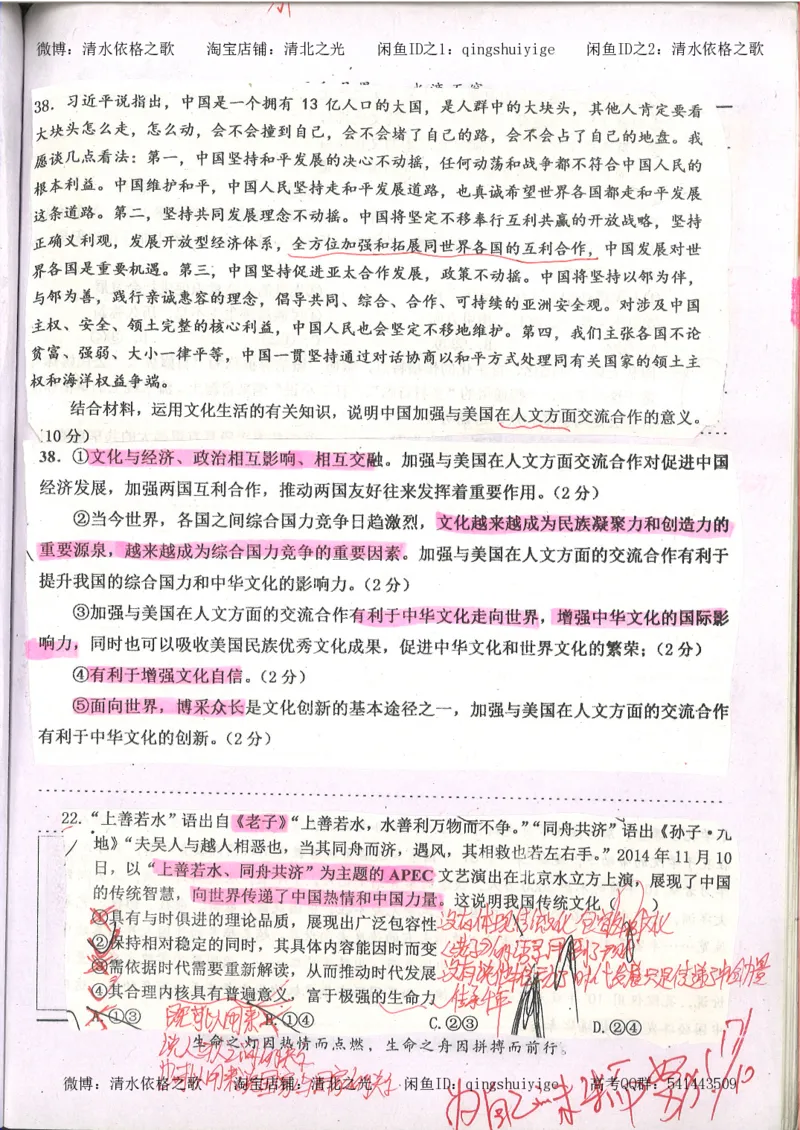 微博：清水依格之歌 淘宝店铺：清北之光 闲鱼ID之1：qingshuiyige 闲鱼ID之2：清水依格之歌
38．习近平说指出，中国是一个拥有 13 亿人口的大国，是人群中的大块头，其他人肯定要看
大块头怎么走，怎么动，会不会撞到自己，会不会堵了自己的路，会不会占了自己的地盘。我
愿谈几点看法：第一，中国坚持和平发展的决心不动摇，任何动荡和战争都不符合中国人民的
根本利益。中国维护和平，中国人民坚持走和平发展道路，也真诚希望世界各国都走和平发展
这条道路。第二，坚持共同发展理念不动摇。中国将坚定不移奉行互利共赢的开放战略，坚持
正确义利观，发展开放型经济体系，全方位加强和拓展同世界各国的互利合作，中国发展对世
界各国是重要机遇。第三，中国坚持促进亚太合作发展，政策不动摇。中国将坚持以邻为伴，
与邻为善，践行亲诚惠容的理念，倡导共同、综合、合作、可持续的亚洲安全观。对涉及中国
主权、安全、领土完整的核心利益，中国人民也会坚定不移地维护。第四，我们主张各国不论
贫富、强弱、大小一律平等，中国一贯坚持通过对话协商以和平方式处理同有关国家的领土主
权和海洋权益争端。
结合材料，运用文化生活的有关知识，说明中国加强与美国在人文方面交流合作的意义。
（10 分）
38．①文化与经济、政治相互影响、相互交融。加强与美国在人文方面交流合作对促进中国
经济发展，加强两国互利合作，推动两国友好往来发挥着重要作用。（2 分）
②当今世界，各国之间综合国力竞争日趋激烈，文化越来越成为民族凝聚力和创造力的
重要源泉，越来越成为综合国力竞争的重要因素。加强与美国在人文方面的交流合作有利于
提升我国的综合国力和中华文化的影响力。（2 分）
③加强与美国在人文方面的交流合作有利于中华文化走向世界，增强中华文化的国际影
响力，同时也可以吸收美国民族优秀文化成果，促进中华文化和世界文化的繁荣；（2 分）
④有利于增强文化自信。（2 分）
⑤面向世界，博采众长是文化创新的基本途径之一，加强与美国在人文方面的交流合作
有利于中华文化的创新。（2 分）
22．“上善若水”语出自《老子》“上善若水，水善利万物而不争。”“同舟共济”语出《孙子·九
地》“夫吴人与越人相恶也，当其同舟而济，遇风，其相救也若左右手。”2014 年 11 月 10
日，以“上善若水、同舟共济”为主题的 APEC 文艺演出在北京水立方上演，展现了中国
的传统智慧，向世界传递了中国热情和中国力量。这说明我国传统文化（ ）
①具有与时俱进的理论品质，展现出广泛包容性
②保持相对稳定的同时，其具体内容能因时而变
③需依据时代需要重新解读，从而推动时代发展
④其合理内核具有普遍意义，富于极强的生命力
A.①③ B.①④ C.②③ D.②④
生命之灯因热情而点燃，生命之舟因拼搏而前行。
微博：清水依格之歌 淘宝店铺：清北之光 闲鱼ID：qingshuiyige 高考QQ群：541443509